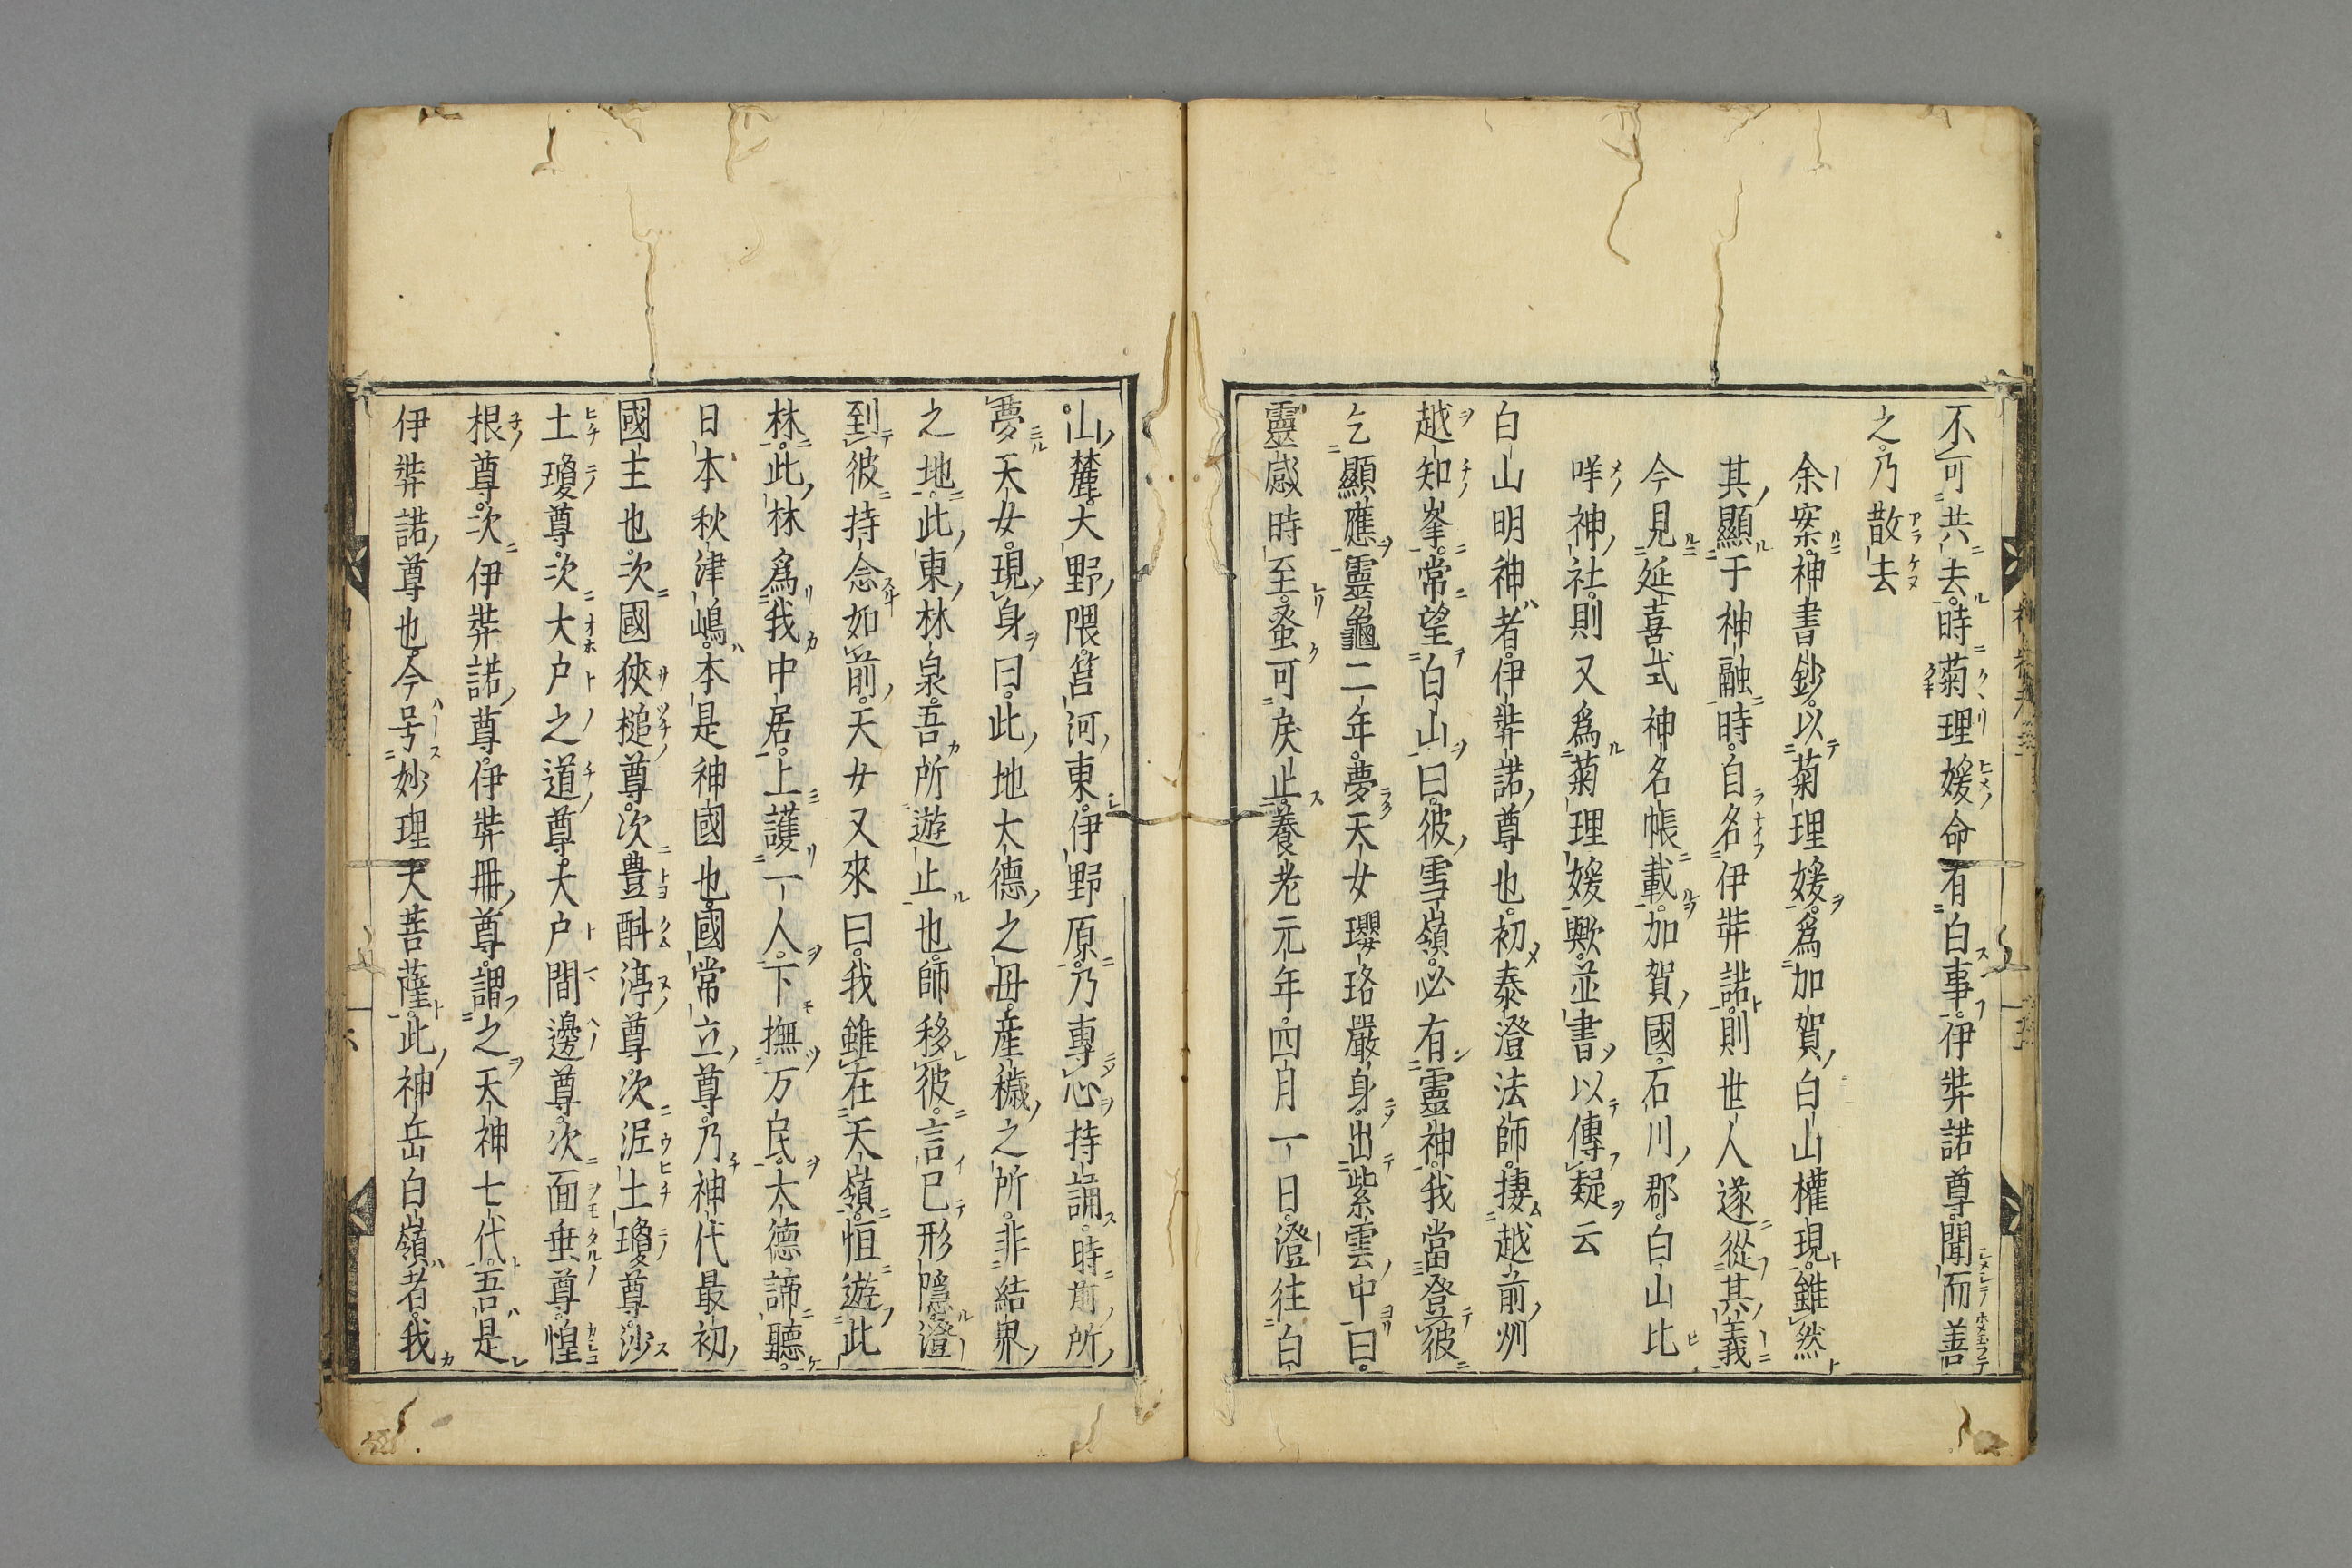 不可共去時菊理媛命有白事伊弉諾尊聞而善
之乃散去
余案神書鈔以菊理媛爲加賀白山權現雖然
其顯于神融時自名伊弉諾則世人遂從其義
今見延喜式神名帳載加賀國石川郡白山比
咩神社則又爲菊理媛歟並書以傳疑云
白山明神者伊弉諾尊也初泰澄法師捿越前州
越知峯常望白山曰彼雪嶺必有靈神我當登彼
乞顯應靈龜二年夢天女瓔珞嚴身出紫雲中曰
靈感時至蚤可戾止養老元年四月一日澄往白
山麓大野隈筥河東伊野原乃專心持誦時前所
夢天女現身曰此地大德之毋產穢之所非結界
之地此東林泉吾所遊止也師移彼言已形隱澄
到彼持念如前天女又來曰我雖在天嶺恒遊此
林此林爲我中居上護一人下撫万民太德諦聽
日本秋津嶋本是神國也國常立尊乃神代最初
國主也次國狹槌尊次豊斟渟尊次泥土瓊尊沙
土瓊尊次大戶之道尊大戶間邊尊次面垂尊惶
根尊次伊弉諾尊伊弉冊尊謂之天神七代吾是
伊弉諾尊也今号妙理大菩薩此神岳白嶺者我